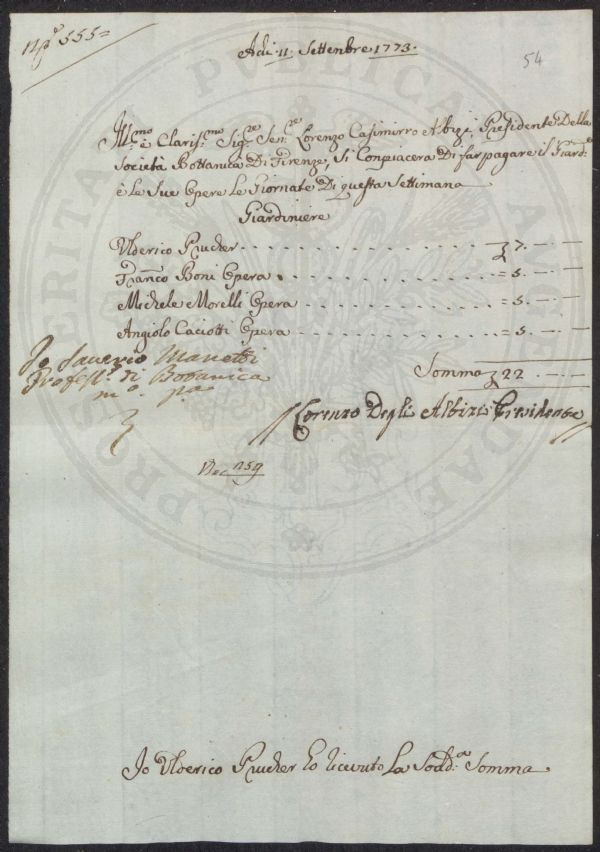 N.º 555=
Adi 11 Settembre 1773.
54
Ill.mo è Claris.mo Sig.re Sen.re Lorenzo Casimirro Albizi, Presidente Della
Società Bottanica Di Firenze, Si Conpiacera Di far pagare il Giard.e
è le Sue Opere Le Giornate Di questa Settimana
Giardiniere
Ulderico Prucker - - - - - - - - - - 7. — - —
Franco Boni Opera - - - - - - - - = 5. — - —
Michele Morelli Opera - - - - - - - = 5. — - —
Angiolo Caciotti Opera - - - - - - - = 5. — - —
Io Saverio Manetti
Profess.e di Botanica
m.o pa
Somma 22 — - —
Lorenzo Degli Albizi Presidente
159
PROSPERITATI PUBLICAE AUGENDAE
Io Ulderico Prucker ho ricevuto La Sodd.a Somma